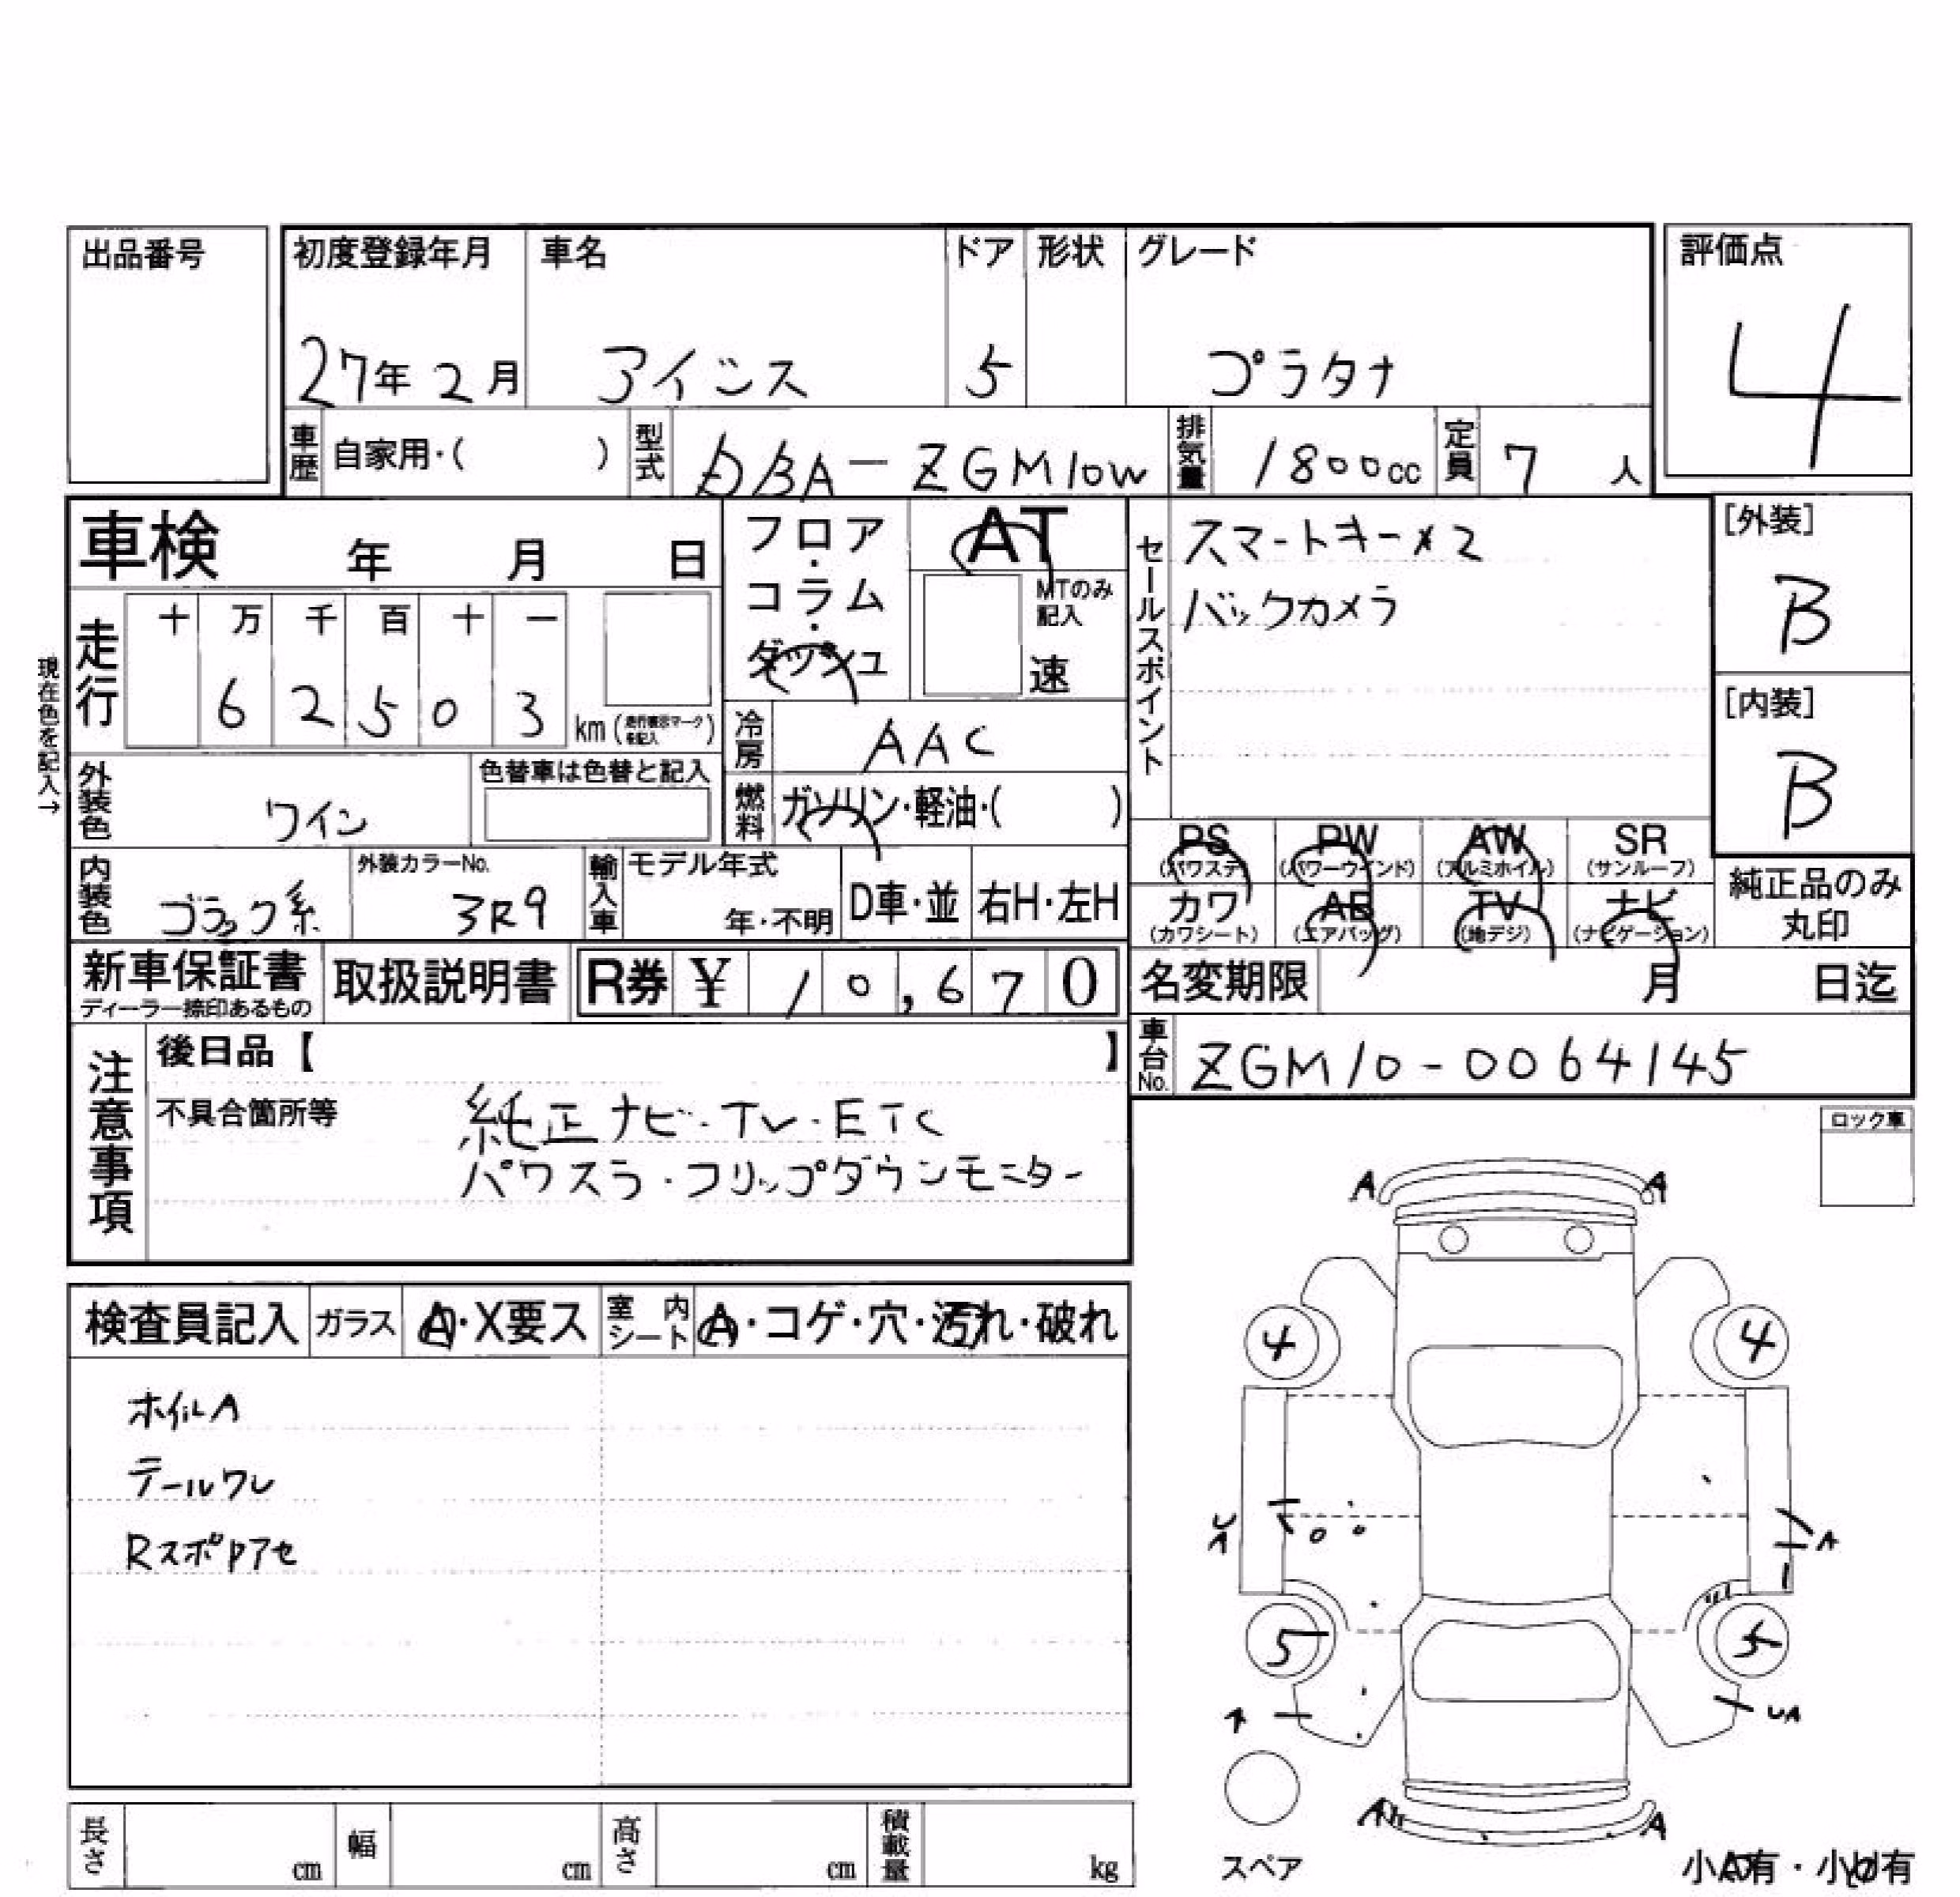 出品番号
初度登録年月 車名 ドア 形状 グレード 評価点
27年 2月 アイシス 5 プラタナ 4
車歴 自家用・( ) 型式 DBA-ZGM10W 排気量 1800cc 定員 7 人
車検 年 月 日
フロア・コラム・ダッシュ
AT
MTのみ記入
速
セールスポイント
スマートキー×2
バックカメラ
[外装]
B
[内装]
B
現在色を記入→
走行 十 万 千 百 十 一
6 2 5 0 3 km (走行表示マークを記入)
冷房 AAC
外装色 ワイン 色替車は色替と記入
燃料 ガソリン・軽油・( )
内装色 ブラック系 外装カラーNo. 3R9
輸入車 モデル年式 年・不明 D車・並 右H・左H
PS (パワステ) PW (パワーウインド) AW (アルミホイル) SR (サンルーフ)
カワ (カワシート) AB (エアバッグ) TV (地デジ) ナビ (ナビゲーション)
純正品のみ丸印
新車保証書 ディーラー捺印あるもの 取扱説明書 R券 ¥ 10,670
名変期限 月 日迄
車台No. ZGM10-0064145
注意事項
後日品【 】
不具合箇所等 純正ナビ・TV・ETC
パワスラ・フリップダウンモニター
ロック車
検査員記入 ガラス A・X要ス 室内シート A・コゲ・穴・汚れ・破れ
ホイルA
テールワレ
RスポPアセ
A A
4 4
U
A A
5 5
A UA
A A
スペア
小A有・小U有
長さ cm 幅 cm 高さ cm 積載量 kg